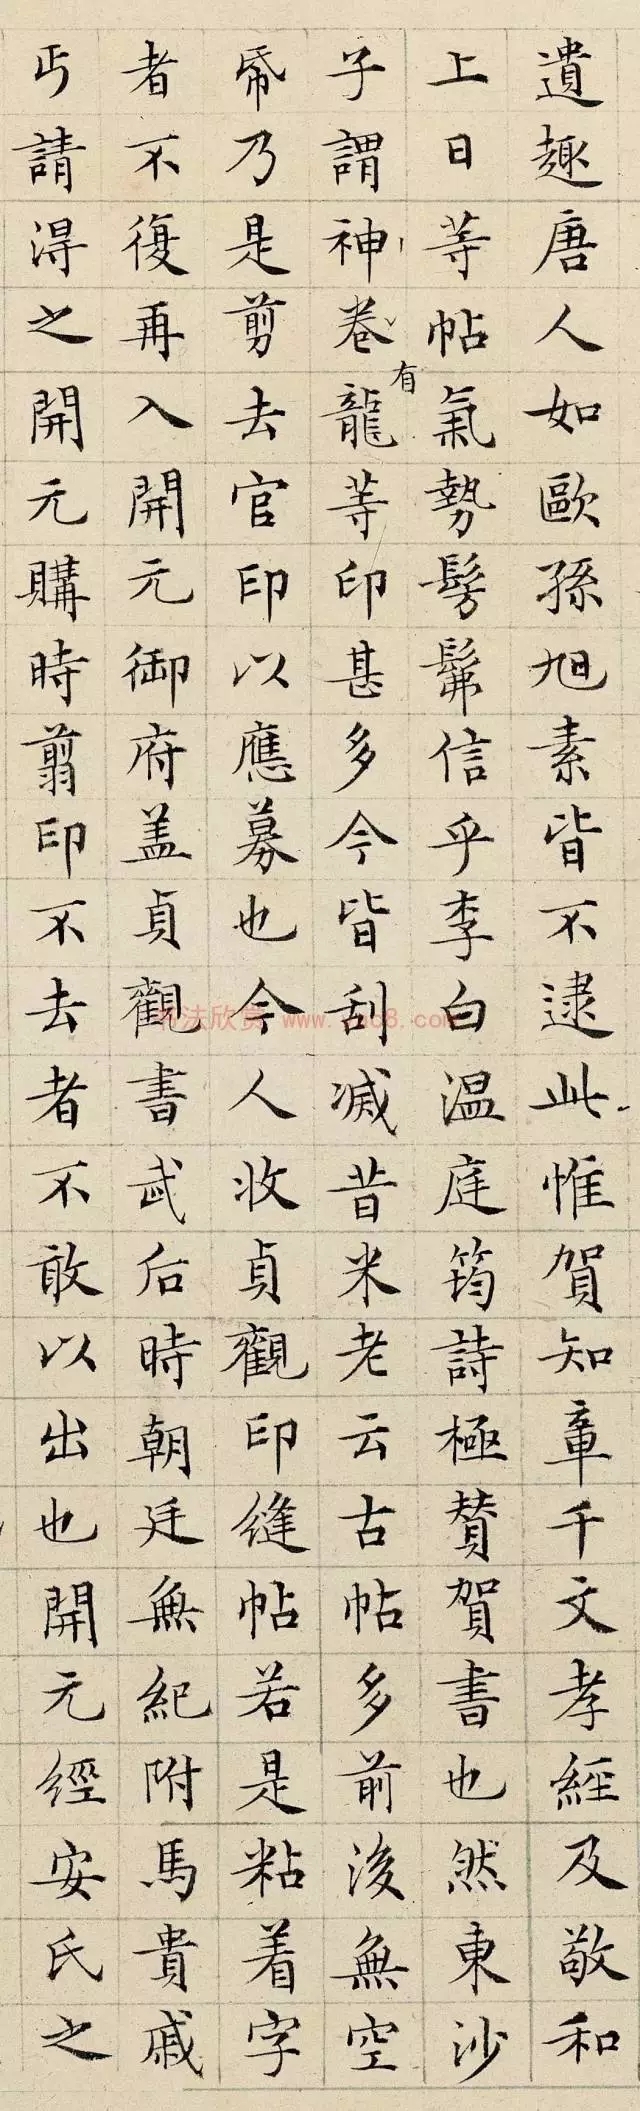 遺趣唐人如歐孫旭素皆不逮此惟賀知章千文孝經及敬和
上日等帖氣勢髣髴信乎李白温庭筠詩極賛賀書也然東沙
子謂神卷有龍等印甚多今皆刮滅昔米老云古帖多前後無空
帋乃是剪去官印以應募也今人收貞觀印縫帖若是粘着字
者不復再入開元御府盖貞觀書武后時朝廷無紀附馬貴戚
丐請得之開元購時翦印不去者不敢以出也開元經安氏之
书法欣赏 www.yac8.com